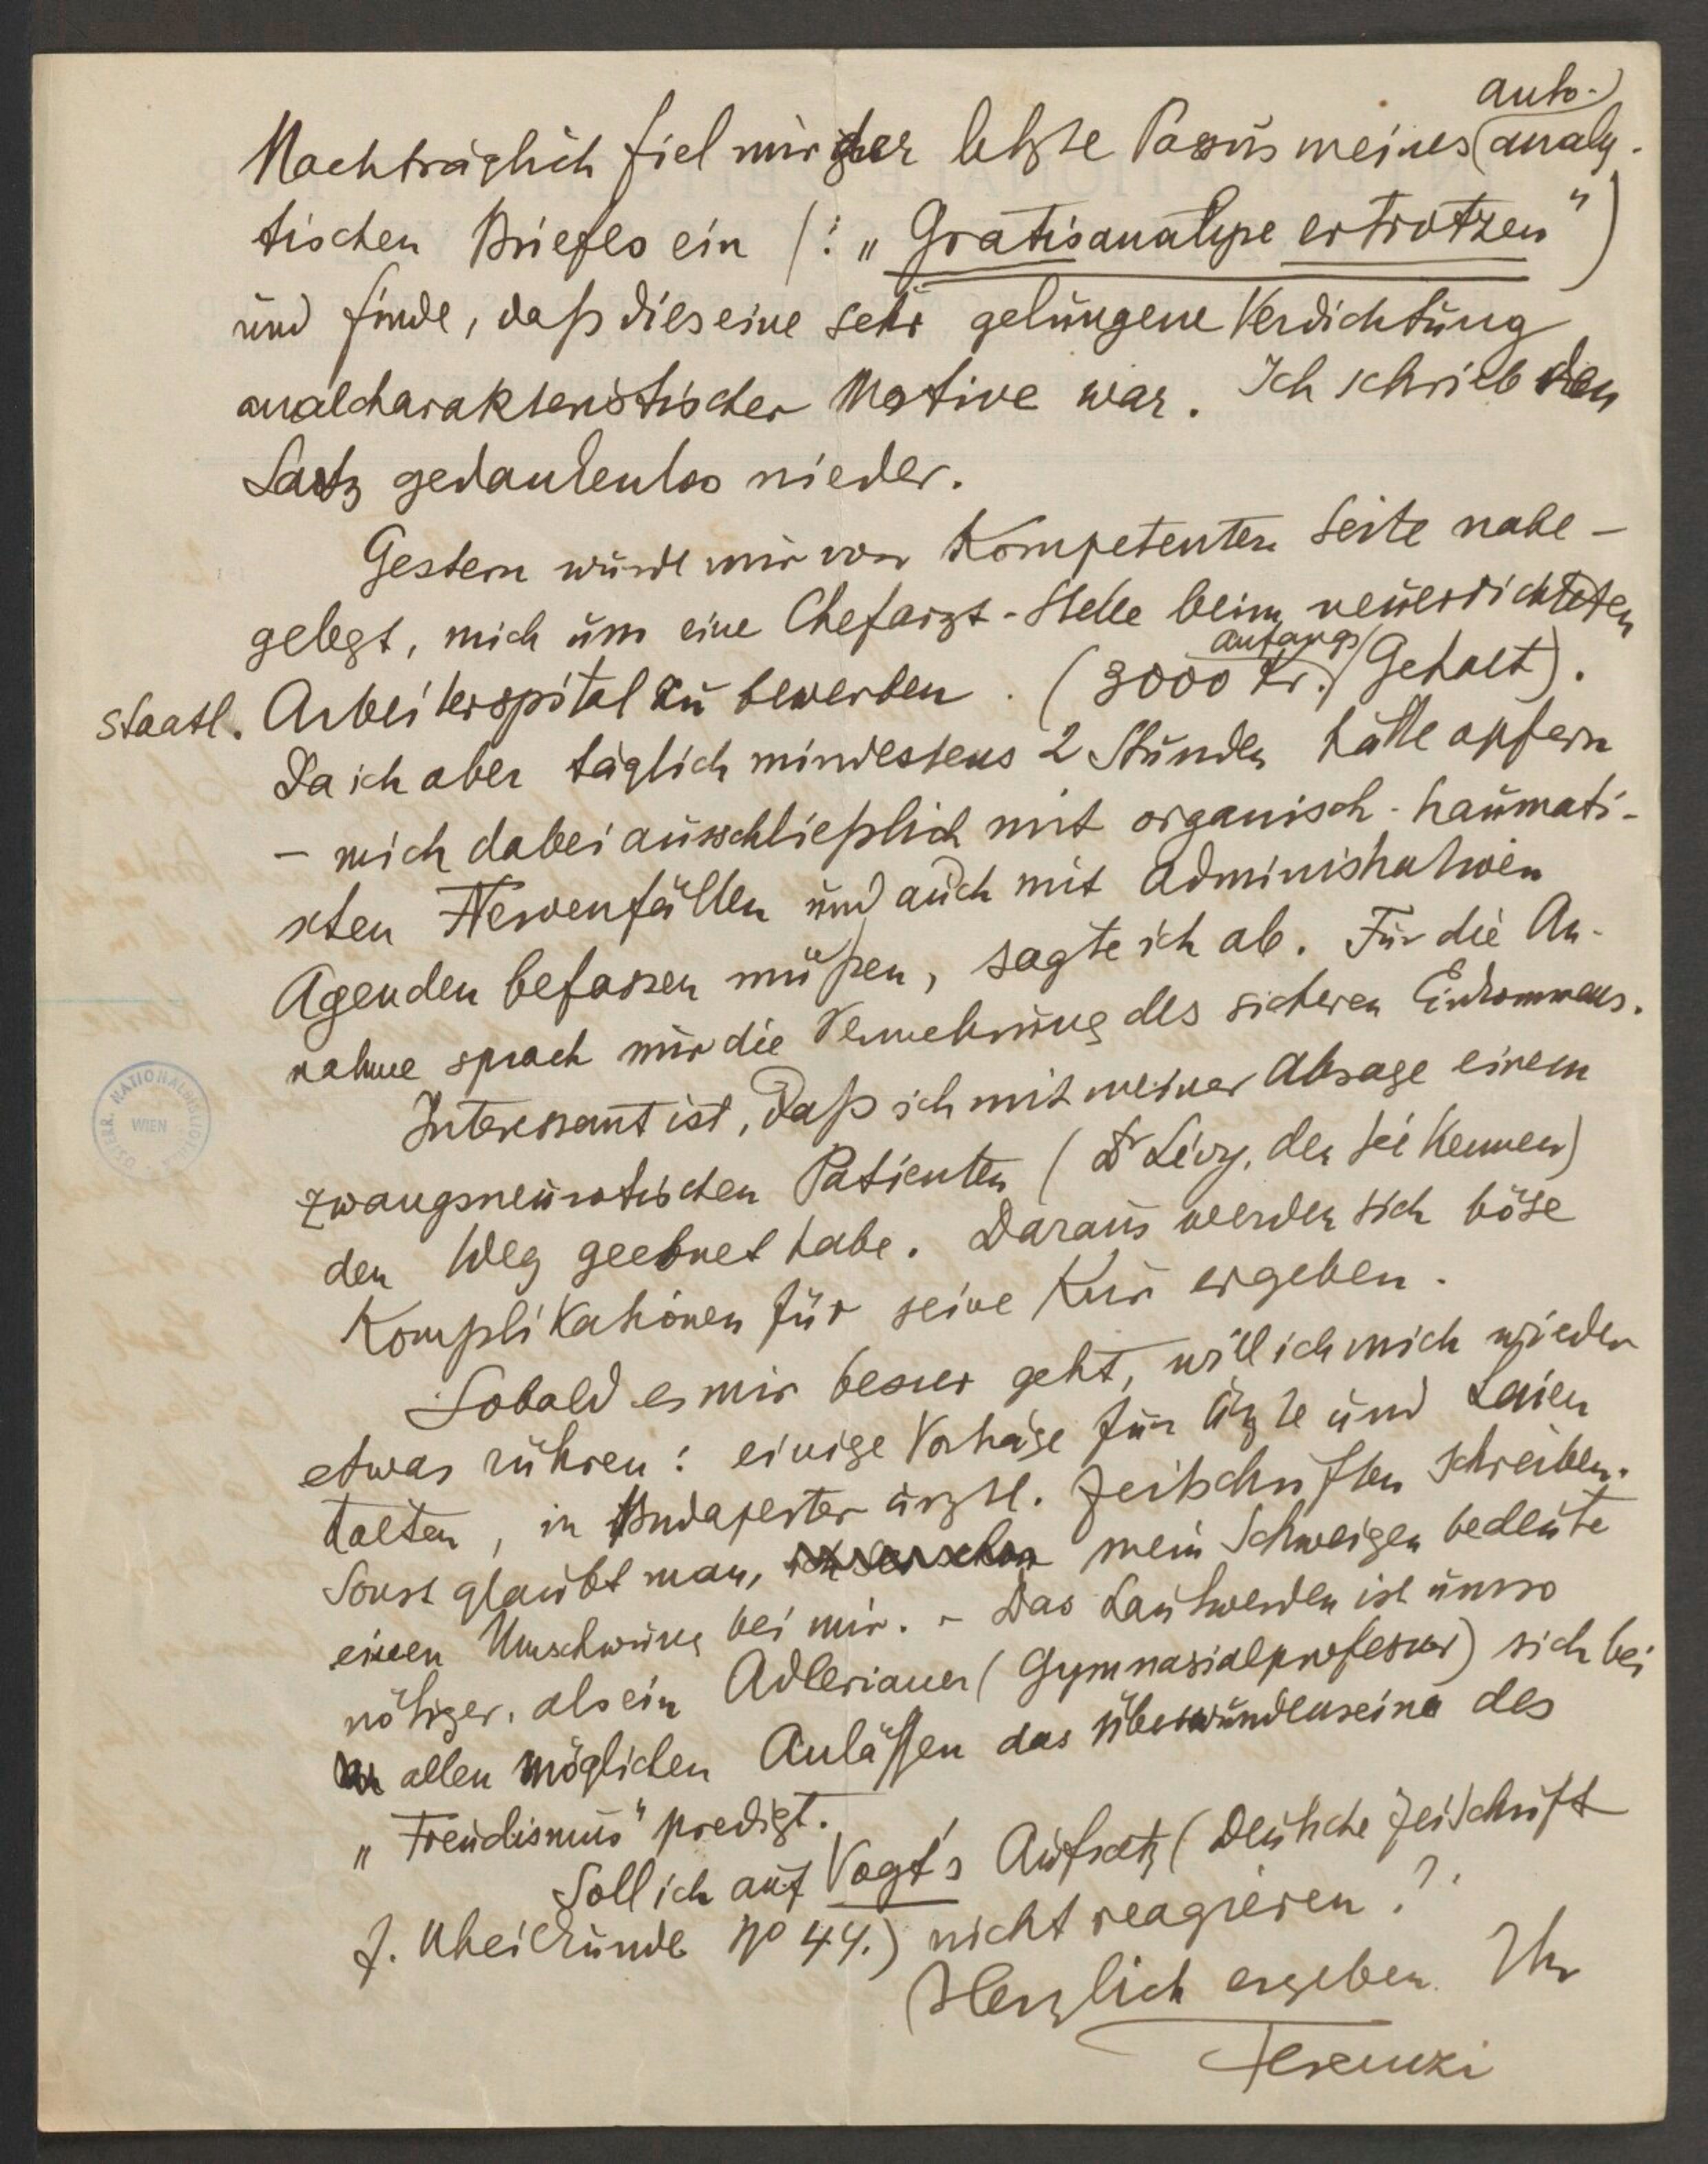 auto-)
Nachträglich fiel mir der letzte Passus meines (analy-
tischen Briefes ein (: „Gratisanalyse ertrotzen")
und finde, daß dies eine sehr gelungene Verdichtung
analcharakteristischer Motive war. Ich schrieb den
Satz gedankenlos nieder.
Gestern wurde mir von kompetenter Seite nahe-
gelegt, mich um eine Chefarzt-Stelle beim neuerrichteten
anfangs
staatl. Arbeiterspital zu bewerben. (3000 Kr./Gehalt).
Da ich aber täglich mindestens 2 Stunden hätte opfern
– mich dabei ausschließlich mit organisch-traumati-
schen Nervenfällen und auch mit administrativen
Agenden befassen müßen, sagte ich ab. Für die An-
nahme sprach nur die Vermehrung des sicheren Einkommens.
Interessant ist, daß ich mit meiner Absage einem
zwangsneurotischen Patienten (Dr Lévy, den Sie kennen)
den Weg geebnet habe. Daraus werden sich böse
Komplikationen für seine Kur ergeben.
Sobald es mir besser geht, will ich mich wieder
etwas rühren: einige Vorträge für Ärzte und Laien
halten, in Budapester ärztl. Zeitschriften schreiben.
Sonst glaubt man, mein Schweigen bedeute
einen Umschwung bei mir. – Das Lautwerden ist umso
nötiger, als ein Adlerianer (Gymnasialprofessor) sich bei
allen möglichen Anläßen das Überwundensein des
„Freudismus" predigt.
Soll ich auf Vogt's Aufsatz (Deutsche Zeitschrift
f. Nheilkunde No 44.) nicht reagieren?
Herzlich ergeben Ihr
Ferenczi
ÖSTERR. NATIONALBIBLIOTHEK
WIEN